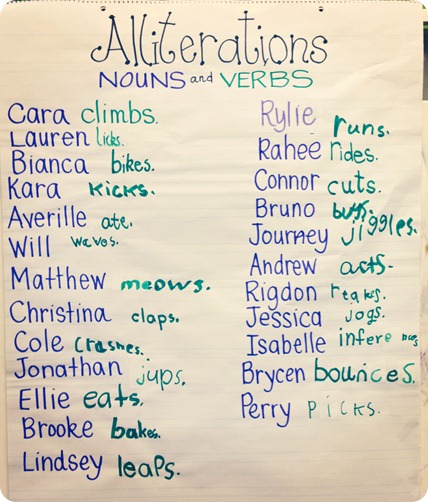 Alliterations
NOUNS and VERBS
Cara climbs.
Lauren licks.
Bianca bikes.
Kara kicks.
Averille ate.
Will waves.
Matthew meows.
Christina claps.
Cole crashes.
Jonathan jups.
Ellie eats.
Brooke bakes.
Lindsey leaps.
Rylie runs.
Rahee rides.
Connor cuts.
Bruno
Journey jiggles.
Andrew acts.
Rigdon
Jessica jogs.
Isabelle infere
Brycen bounces.
Perry picks.